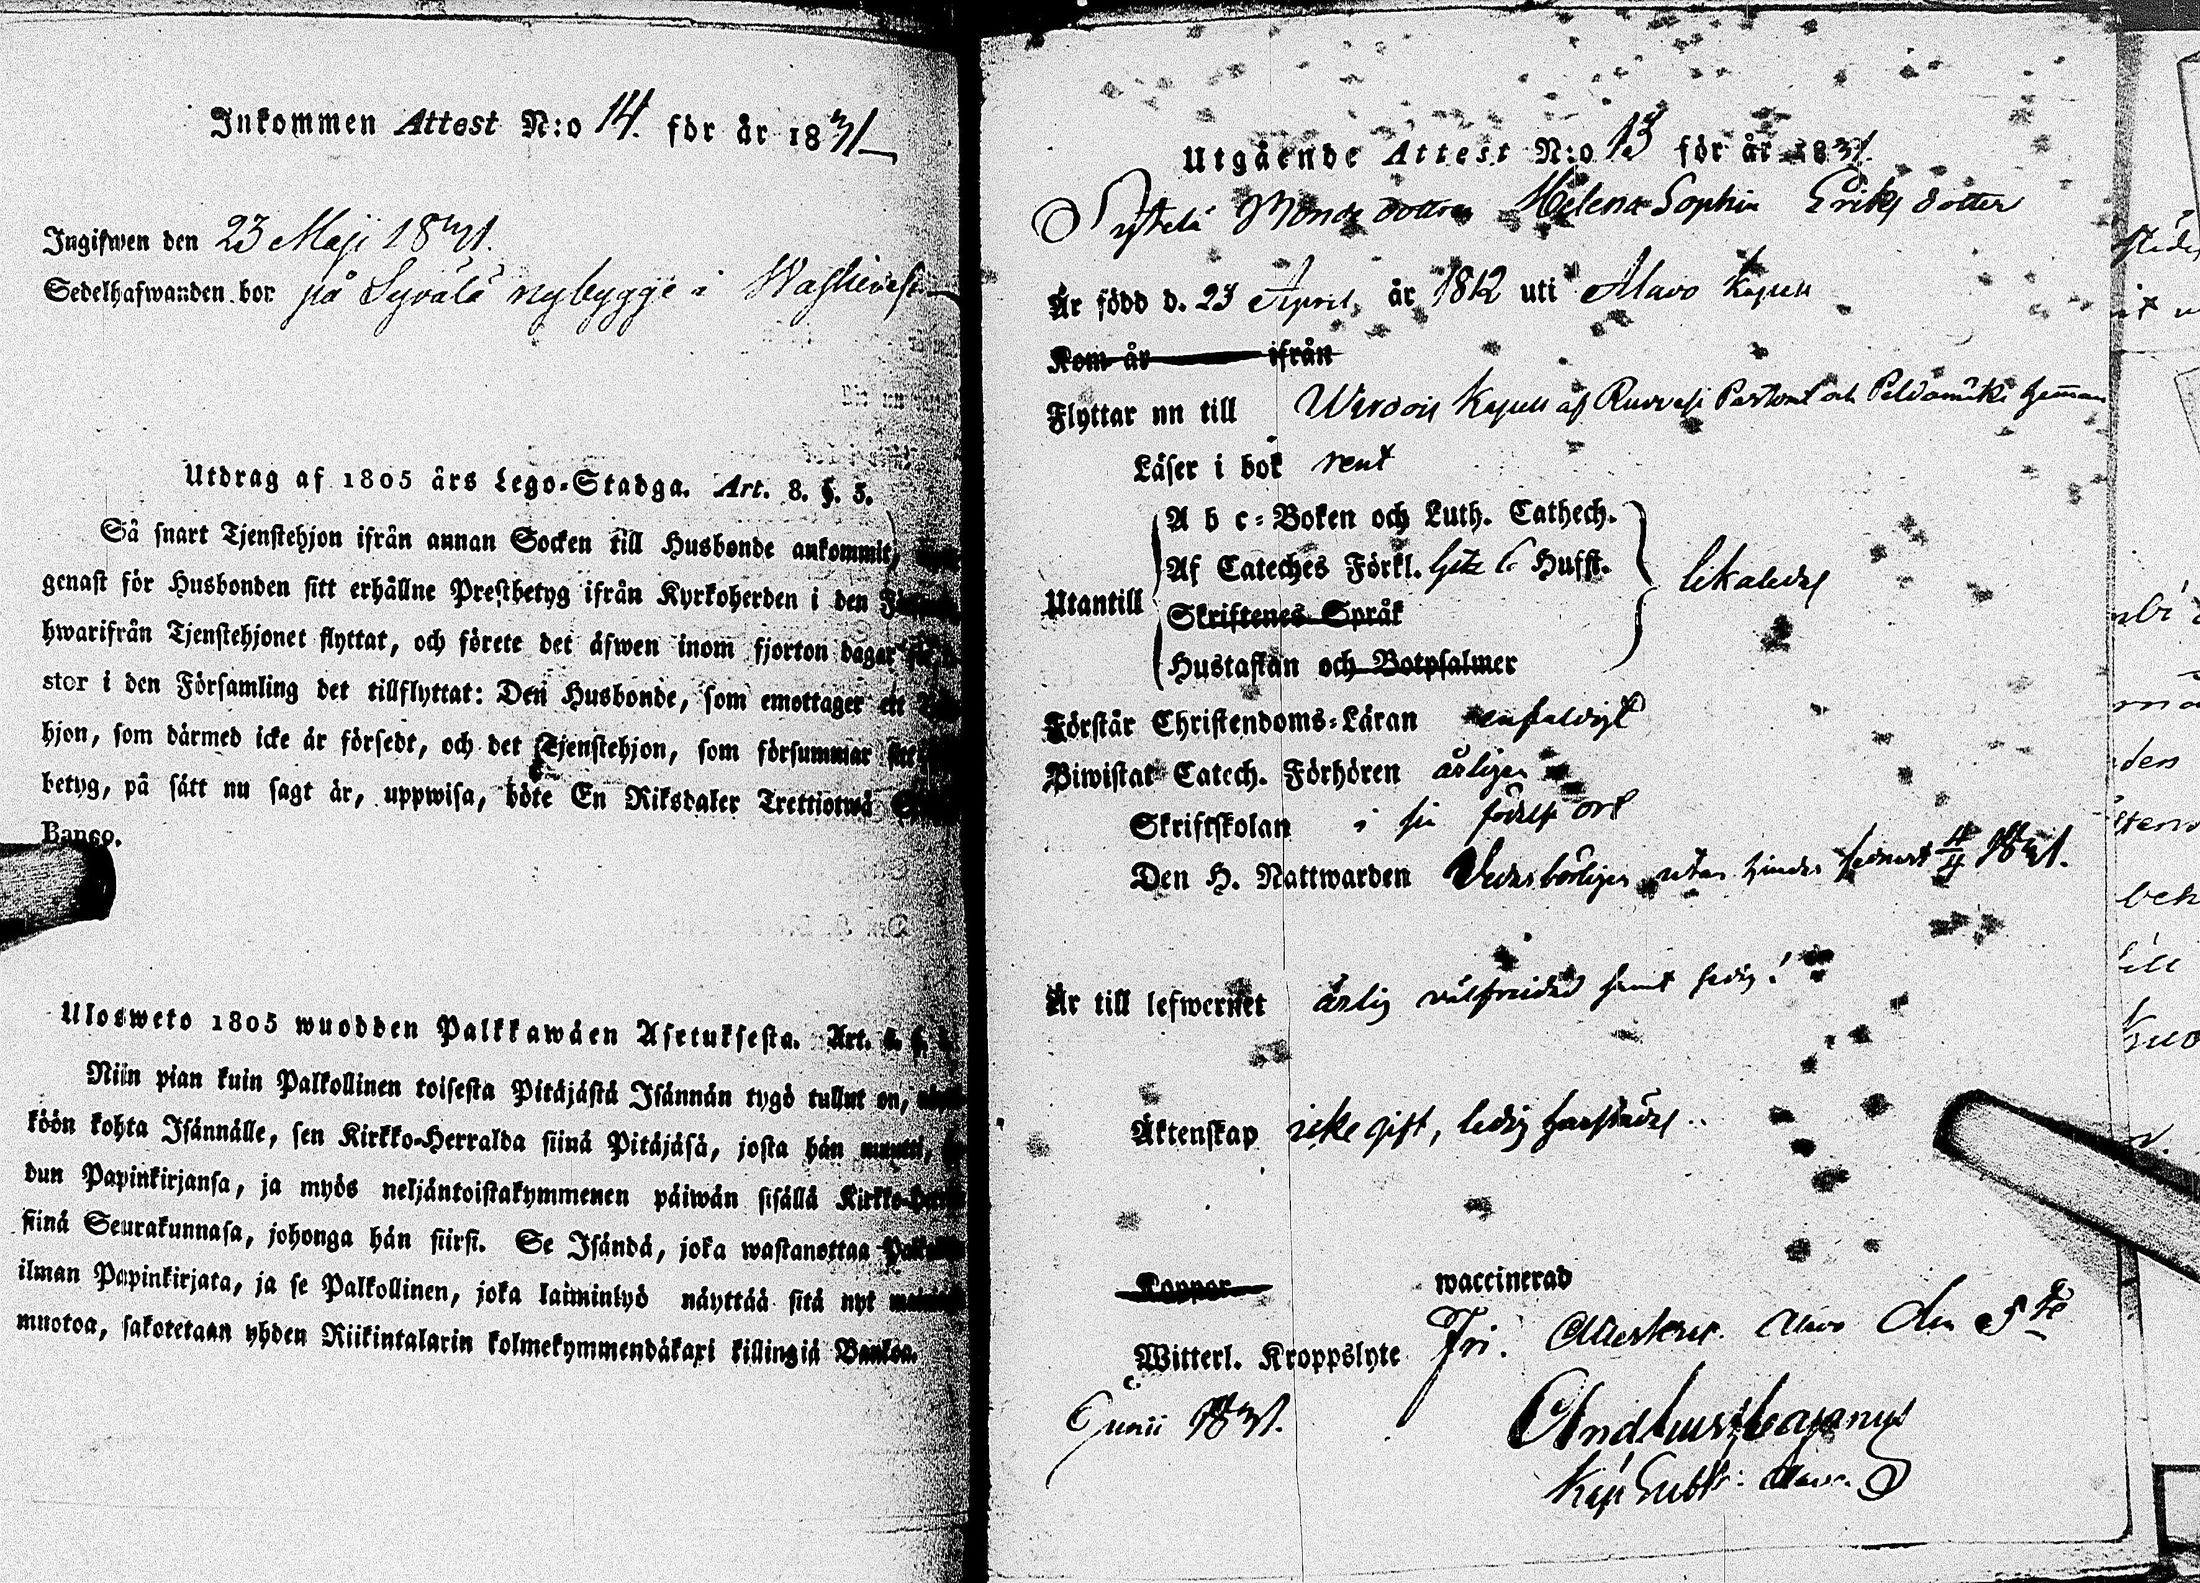 Inkommen Attest N:o 14. för år 1831
Ingifwen den 23 Maji 1831.
Sedelhafwanden bor på Syvälä nybygge i
Utdrag af 1805 års Lego-Stadga. Art. 8. §. 5.
Så snart Tjenstehjon ifrån annan Socken till Husbonde ankommit,
genast för Husbonden sitt erhållne Prestbetyg ifrån Kyrkoherden i den
hwarifrån Tjenstehjonet flyttat, och förete det äfwen inom fjorton dagar
stor i den Församling det tillflyttat: Den Husbonde, som emottager ett
hjon, som därmed icke är försedt, och det Tjenstehjon, som försummar
betyg, på sätt nu sagt är, uppwisa, böte En Riksdaler Trettiotwå
Banco.
Ulosweto 1805 wuodden Palkkawäen Asetuksesta. Art.
Niin pian kuin Palkollinen toisesta Pitäjästä Isännän tygö tullut on,
köön kohta Isännälle, sen Kirkko-Herralda siinä Pitäjäsä, josta hän muutti,
dun Papinkirjansa, ja myös neljäntoistakymmenen päiwän sisällä
siinä Seurakunnasa, johonga hän siirsi. Se Isändä, joka wastanottaa
ilman Papinkirjata, ja se Palkollinen, joka laiminlyö näyttää sitä nyt
muotoa, sakotetaan yhden Riikintalarin kolmekymmendäkaxi killingiä Bankoa.
Utgående Attest N:o 13 för år 1831.
Helena Sophia Eriks dotter
Är född d. 23 April, år 1812 uti Alavo Kapell
Kom år ifrån
Flyttar nu till Wirdois Kapell af Ruovesi Pastorat och
Läser i bok rent
Utantill
A b c-Boken och Luth. Cathech.
Af Cateches Förkl. Hufst.
Skriftenes Språk
Hustaflan och Botpsalmer
likaledes
Förstår Christendoms-Läran enfaldigt
Biwistat Catech. Förhören årligen
Skriftskolan i sin födelse ort
Den H. Nattwarden Vederbörligen utan hinder senast 1831.
Är till lefwernet ärlig välfrejdad samt ledig!
Äktenskap icke gift, ledig
Koppor waccinerad
Witterl. Kroppslyte Fri. Alavo den 5te
Junii 1831.